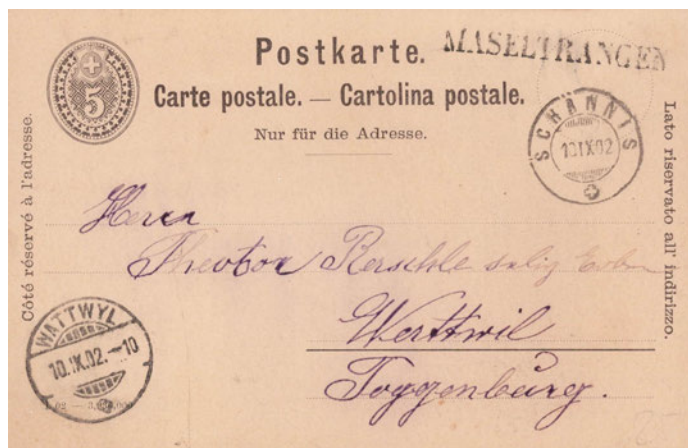 Postkarte.
MASELTRANGEN
5
Carte postale. — Cartolina postale.
Nur für die Adresse.
SCHÄNNIS
10 IX 02
Côté réservé à l'adresse.
Lato riservato all' indirizzo.
Herrn
Theodor selig Erben
Wattwil
Toggenburg.
WATTWYL
10.IX.02.–10